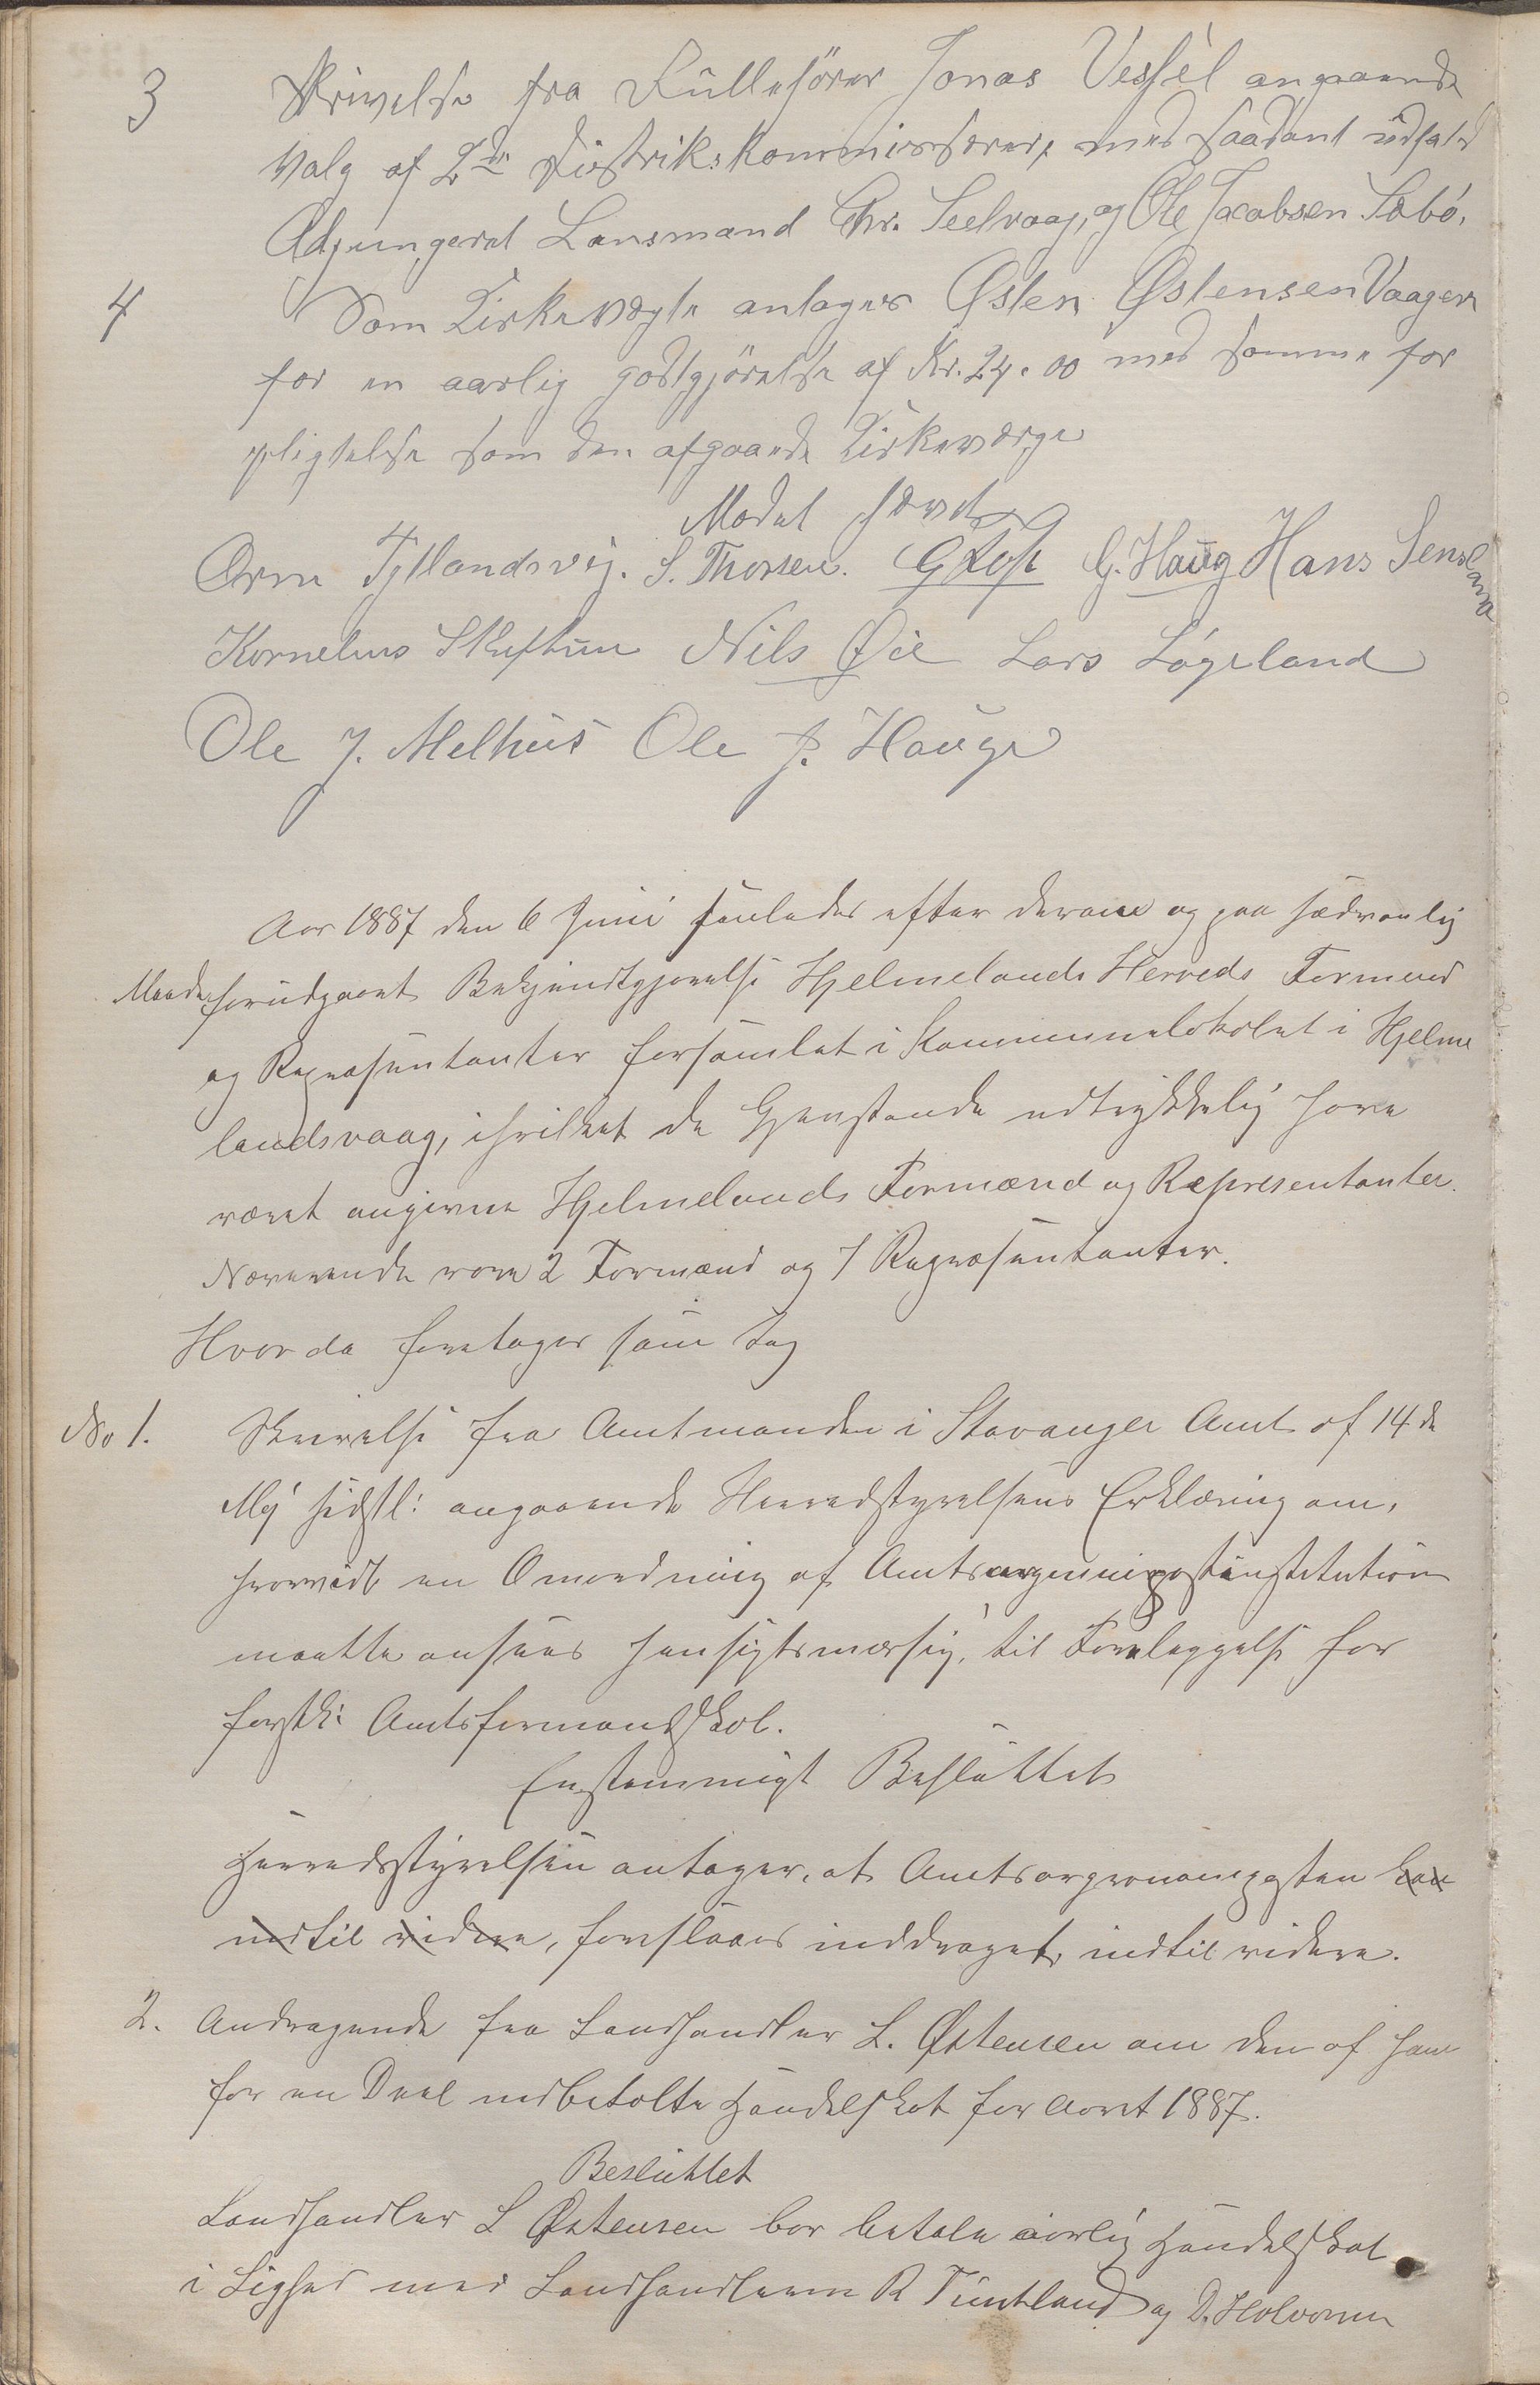 3 Skrivelse fra Rulleförer Jonas Vessel angaaende
Valg af 2de Distrikskommissærer, med saadant udfald
Adjungeret Lensmand Chr. Seelvaag, og Ole Jacobsen Sæbö.
4 Som Kirkeværge antages Østen Østensen Vaagen
for en aarlig godtgjörelse af Kr. 24.00 med samme for
pligtelse som den afgaaede Kirkeværge
Mødet hævet
Orm Fyllandsvig. S. Thorsen. G. Haug Hans
Kornelius Skeftun Nils Øie Lars Løgeland
Ole J. Melhus Ole J. Hauge
Aar 1887 den 6 Juni holdes efter derom og paa sædvanlig
Maade forudgaaet Bekjendtgjørelse Hjelmelands Herreds Formænd
og Repræsentanter forsamlet i Kommunelokalet i Hjelme
landsvaag, ihvilket de Gjenstande udtrykkelig have
været angivne Hjelmelands Formænd og Repræsentanter.
Nærværende vare 2 Formænd og 7 Repræsentanter.
Hvor da foretages som Sag
No 1. Skrivelse fra Amtmanden i Stavanger Amt af 14de
Mai sidstl: angaaende Herredstyrelsens Erklæring om,
hvorvidt en Omordning af Amts
maatte ansees hensigtsmæssig, til Forelæggelse for
førstk: Amtsformandskab.
Enstemmigt Besluttet
Herredsstyrelsen antager, at Amtsagronomposten kan
indtil videre, foreslaaes inddraget, indtil videre.
2. Andragende fra Landhandler L. Østensen om den af ham
for en Deel indbetalte Handelskat for Aaret 1887.
Besluttet
Landhandler L Østensen bør betale aarlig Handelskat
i Lighed med Landhandlerne R Tuntland og D. Halvorsen